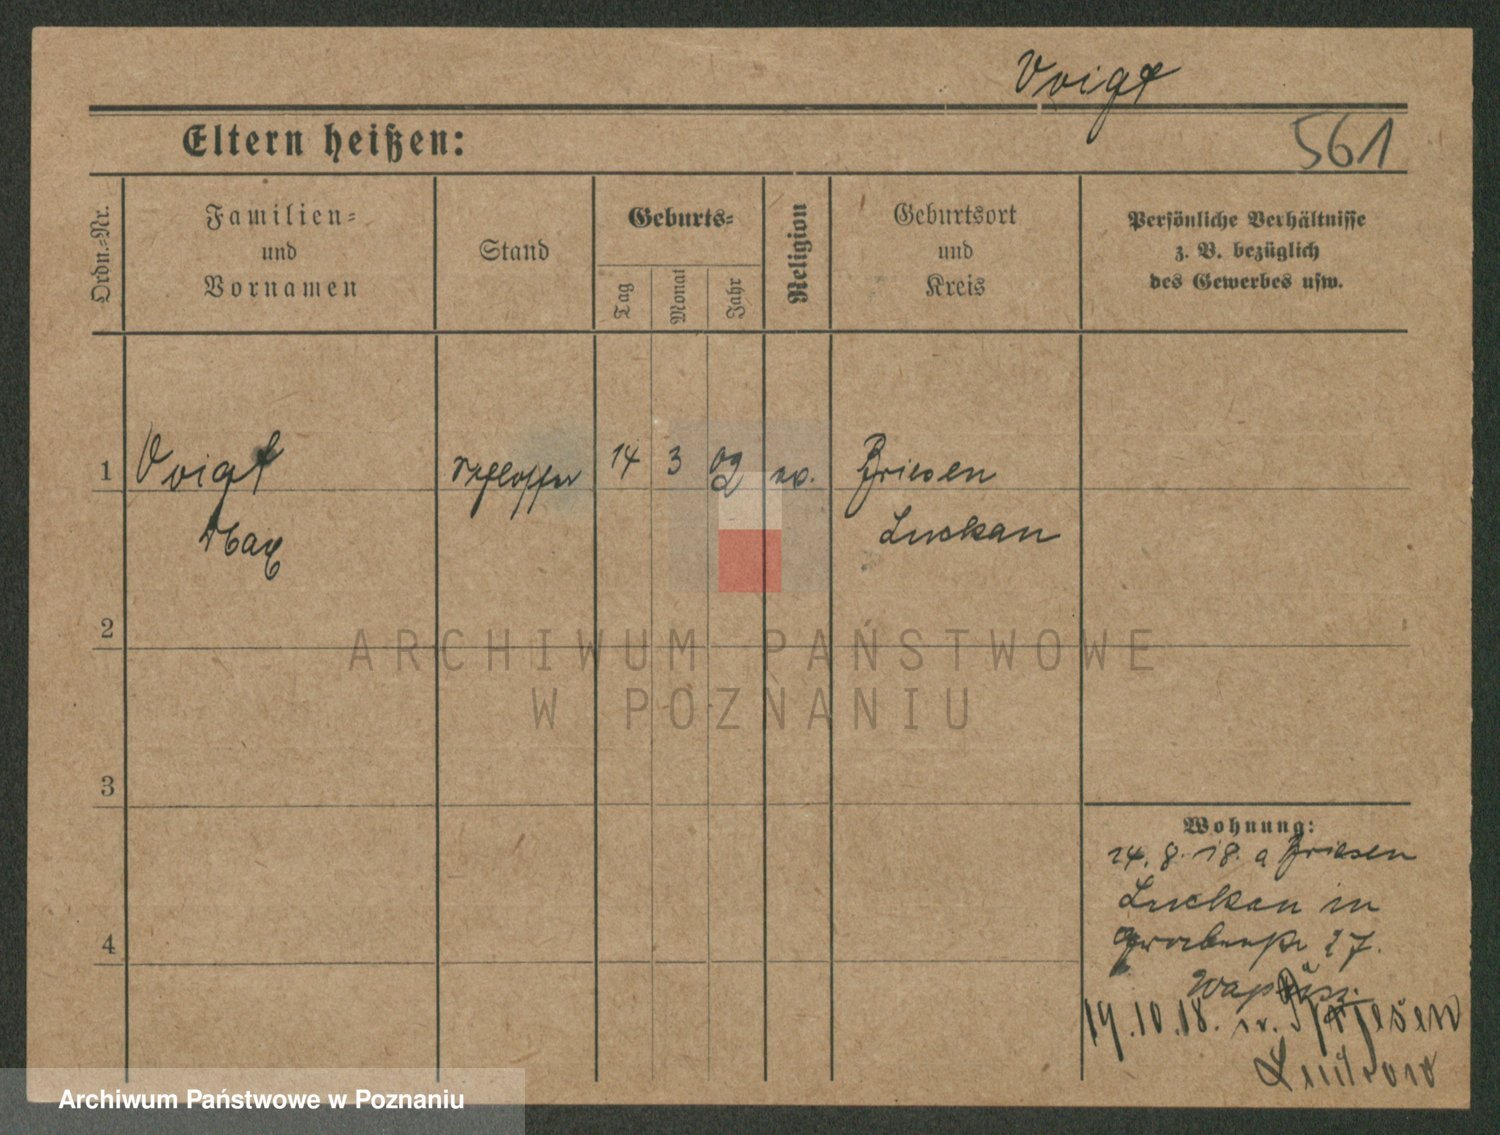 Voigt
561
Eltern heißen:
Ordn.-Nr.
Familien-
und
Vornamen
Stand
Geburts-
Tag
Monat
Jahr
Religion
Geburtsort
und
Kreis
Persönliche Verhältnisse
z. B. bezüglich
des Gewerbes usw.
1 Voigt Schlosser 14 3 02 ev. Briesen
Max Luckau
2
3
4
ARCHIWUM PAŃSTWOWE
W POZNANIU
Wohnung:
14. 8. 18. a Briesen
Luckau in
27.
19.10.18. n.
Archiwum Państwowe w Poznaniu